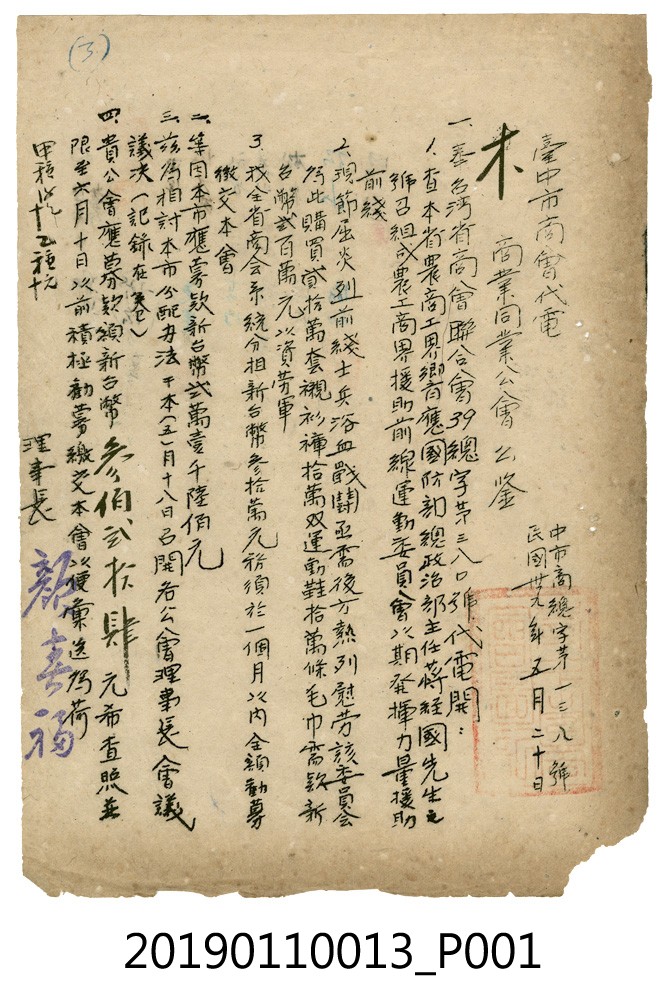 (3)
臺中市商會代電
中市商總字第一三九號
民國卅九年五月二十日
木 商業同業公會 公鑒
一、奉台湾省商會聯合會39總字第三八〇號代電開：
1、查本省農商工界鄉音應國防部總政治部主任蔣經國先生之
號召組成農工商界援助前線運動委員會以期發揮力量援助
前綫
2、現節屆炎烈前綫士兵浴血戰鬪亟需後方熱列慰劳該委員會
為此購買貳拾萬套襯衫褲拾萬双運動鞋拾萬條毛巾需款新
台幣弍百萬元以資劳軍
3、我全省商会系統分担新台幣參拾萬元務須於一個月以内全額勸募
繳交本會
二、等因本市應募款新台幣弍萬壹千陸佰元
三、茲為相討本市分配办法于本(五)月十八日召開各公會理事長會議
議决(記錄在卷)
四、貴公會應募款額新台幣參佰弍拾肆元希查照並
限至六月十日以前積極勸募繳交本會以便彙送為荷
理事長 顏春福
20190110013_P001